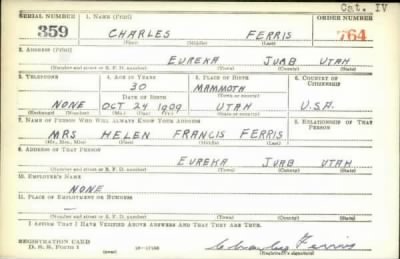 Cat. IV
SERIAL NUMBER 1. NAME (Print) ORDER NUMBER
359 CHARLES FERRIS 764
(First) (Middle) (Last)
2. ADDRESS (Print)
EUREKA JUAB UTAH
(Number and street or R. F. D. number) (Town) (County) (State)
3. TELEPHONE 4. AGE IN YEARS 5. PLACE OF BIRTH 6. COUNTRY OF CITIZENSHIP
30 MAMMOTH
DATE OF BIRTH (Town or county)
NONE OCT 24 1909 UTAH U.S.A.
(Exchange) (Number) (Mo.) (Day) (Yr.) (State or country)
7. NAME OF PERSON WHO WILL ALWAYS KNOW YOUR ADDRESS 8. RELATIONSHIP OF THAT PERSON
MRS HELEN FRANCIS FERRIS
(Mr., Mrs., Miss) (First) (Middle) (Last)
9. ADDRESS OF THAT PERSON
EUREKA JUAB UTAH
(Number and street or R. F. D. number) (Town) (County) (State)
10. EMPLOYER'S NAME
NONE
11. PLACE OF EMPLOYMENT OR BUSINESS
—
(Number and street or R. F. D. number) (Town) (County) (State)
I AFFIRM THAT I HAVE VERIFIED ABOVE ANSWERS AND THAT THEY ARE TRUE.
REGISTRATION CARD
D. S. S. FORM 1 (over) Charles Ferris
(Registrant's signature)